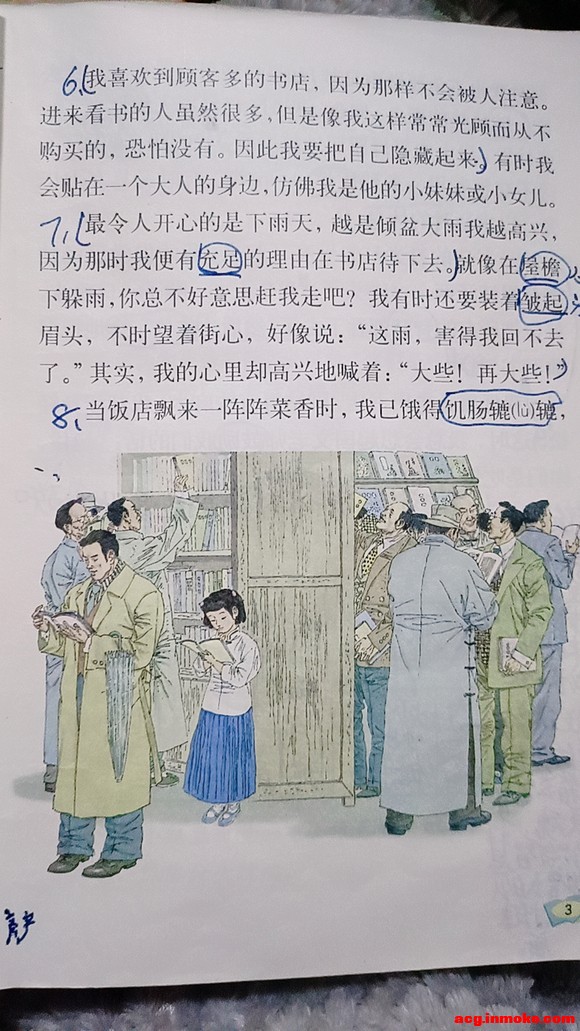 6、我喜欢到顾客多的书店，因为那样不会被人注意。
进来看书的人虽然很多，但是像我这样常常光顾而从不
购买的，恐怕没有。因此我要把自己隐藏起来。有时我
会贴在一个大人的身边，仿佛我是他的小妹妹或小女儿。
7、最令人开心的是下雨天，越是倾盆大雨我越高兴，
因为那时我便有充足的理由在书店待下去。就像在屋檐
下躲雨，你总不好意思赶我走吧？我有时还要装着皱起
眉头，不时望着街心，好像说：“这雨，害得我回不去
了。”其实，我的心里却高兴地喊着：“大些！再大些！”
8、当饭店飘来一阵阵菜香时，我已饿得饥肠辘(lù)辘，
3
acg.inmoke.com